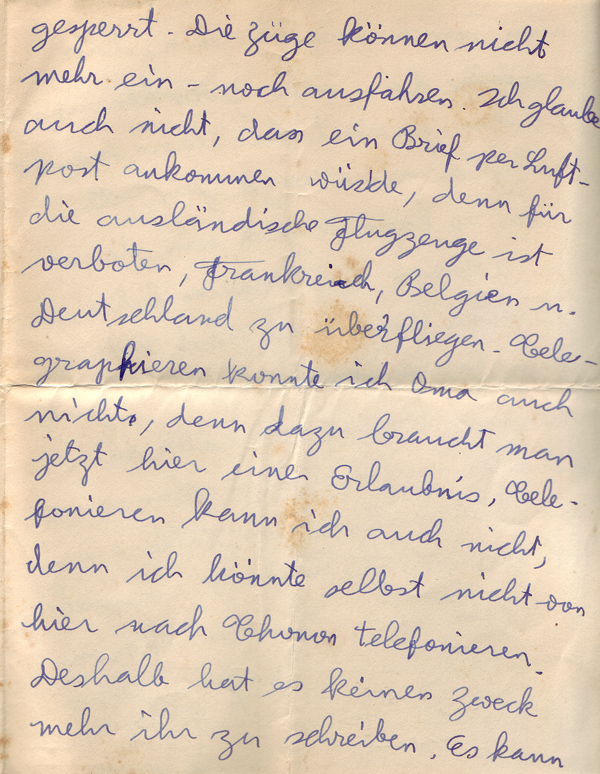 gesperrt. Die züge können nicht
mehr ein - noch ausfahren. Ich glaube
auch nicht, dass ein Brief per Luft-
post ankommen würde, denn für
die ausländische Flugzeuge ist
verboten, Frankreich, Belgien u.
Deutschland zu überfliegen. Tele-
graphieren konnte ich Oma auch
nichts, denn dazu braucht man
jetzt hier einer Erlaubnis, Tele-
fonieren kann ich auch nicht,
denn ich könnte selbst nicht von
hier nach Thonon telefonieren.
Deshalb hat es keinen zweck
mehr ihr zu schreiben. Es kann